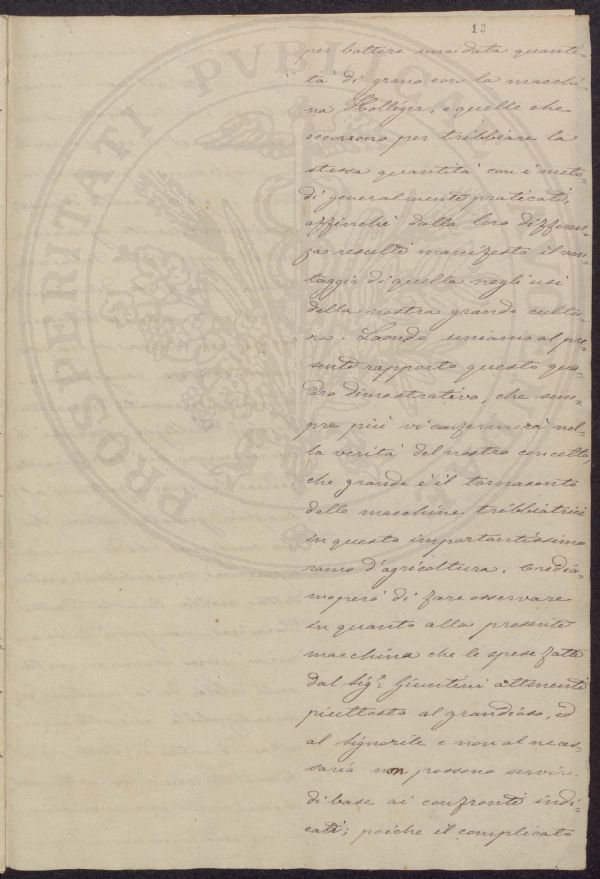 13
per battere una data quanti=
tà di grano con la macchi=
na Holliger, e quelle che
occorrono per tribbiare la
stessa quantità con i meto=
di generalmente praticati,
affinchè dalla loro differen=
za resulti manifesto il van=
taggio di quella negli usi
della nostra grande cultu=
ra. Laonde uniamo al pre=
sente rapporto questo qua=
dro dimostrativo, che sem=
pre più vi confermerà nel=
la verità del nostro concetto,
che grande è il tornaconto
delle macchine tribbiatrici
in questo importantissimo
ramo d'agricoltura. Credia=
mo però di fare osservare
in quanto alla presente
macchina che le spese fatte
dal Sigr. Giuntini attenenti
piuttosto al grandioso, ed
al signorile e non al neces=
sario non possono servire
di base ai confronti indi=
cati; poichè il complicato
PROSPERITATI PVBLICAE